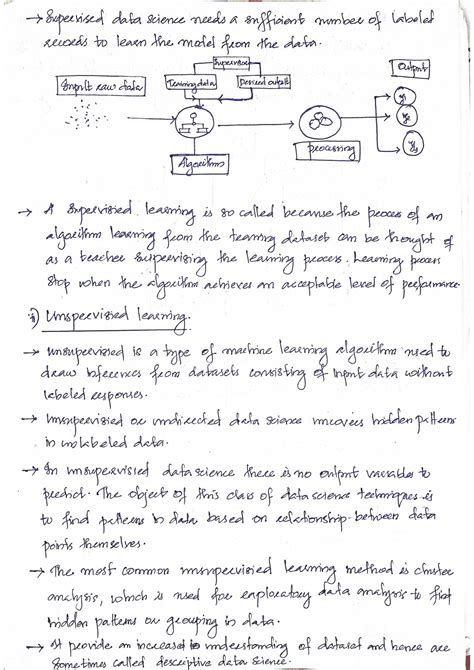 → Supervised data science needs a sufficient number of labeled
records to learn the model from the data.
Supervisor
Output
Input raw data
Training data
Desired output
Algorithms
processing
→ A Supervised learning is so called because the process of an
algorithm learning from the training dataset can be thought of
as a teacher supervising the learning process. Learning process
stop when the algorithm achieves an acceptable level of performance
Unsupervised learning.
→ unsupervised is a type of machine learning algorithm used to
draw inferences from datasets consisting of input data without
labeled responses.
→ Unsupervised or undirected data science uncovers hidden patterns
in unlabeled data.
→ In unsupervised data science there is no output variables to
predict. The object of this class of data science techniques is
to find patterns in data based on relationship between data
points themselves.
→ The most common unsupervised learning method is cluster
analysis, which is used for exploratory data analysis to find
hidden patterns or grouping in data.
→ It provide an increased understanding of dataset and hence are
sometimes called descriptive data science.